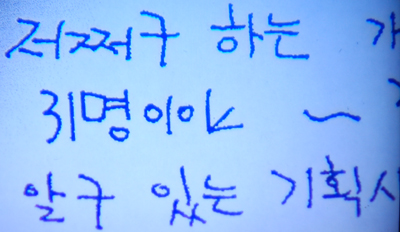 저쩌구 하는 가
31명이야 ~
알구 있는 기획사